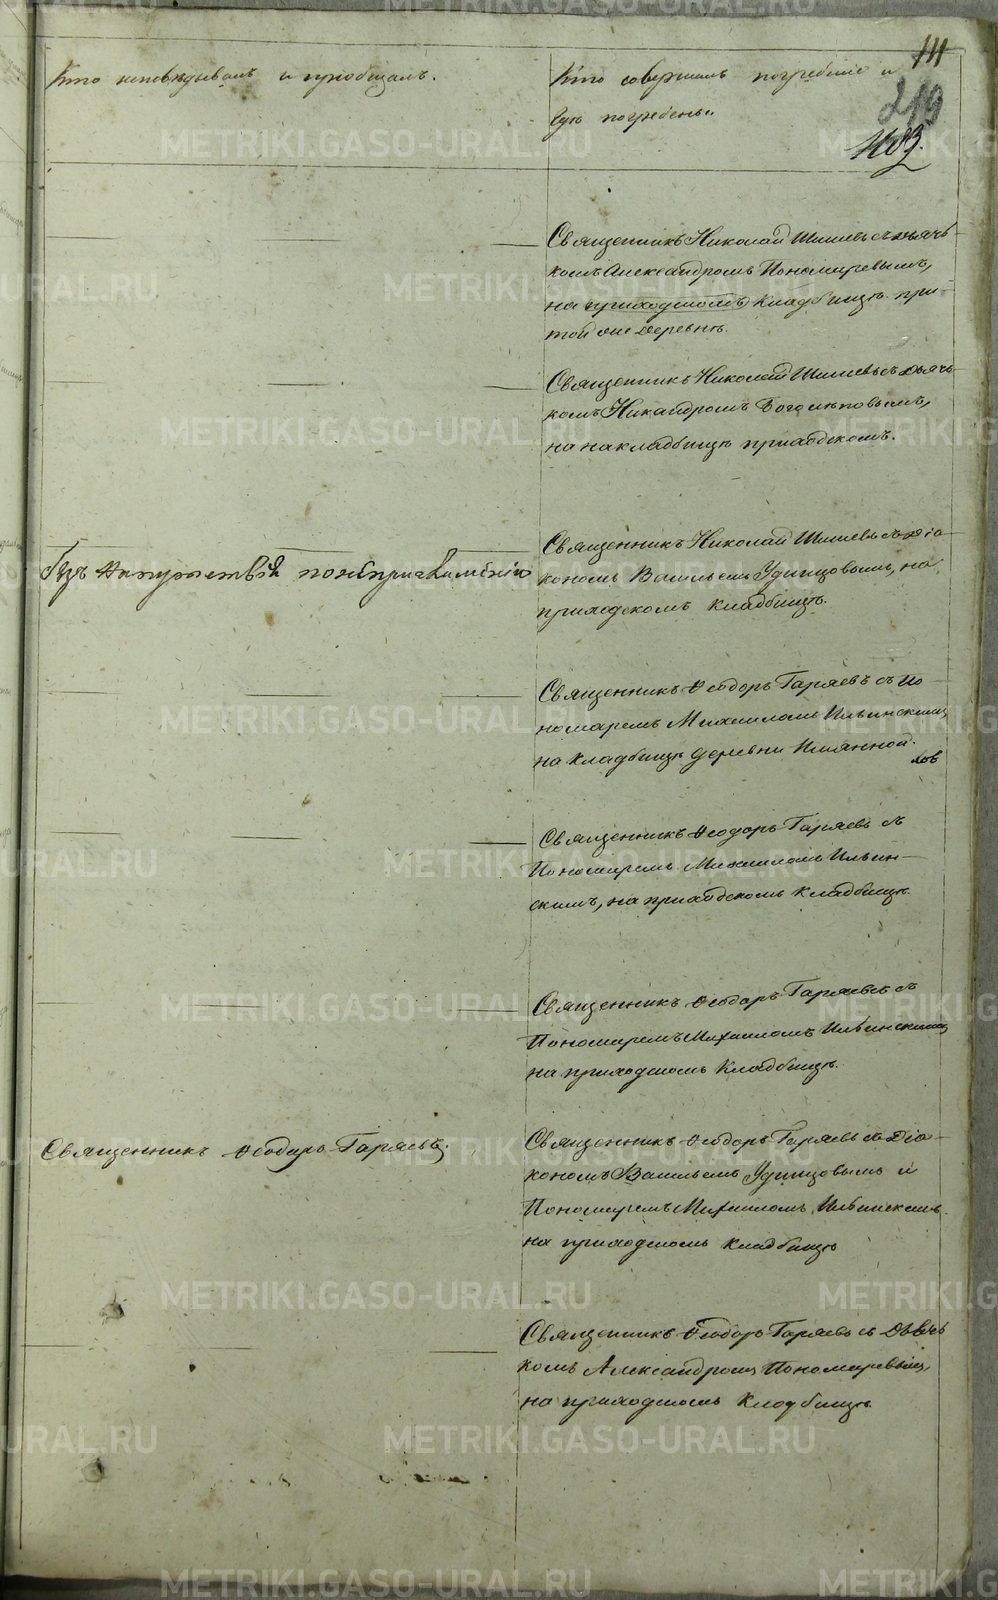 111
219
Кто исповѣдывалъ и пріобщалъ.
Кто совершалъ погребеніе и
гдѣ погребены.
Священникъ Николай Шишевъ съ дьяч-
комъ Александромъ Пономаревымъ,
на приходскомъ кладбищѣ при
той же деревнѣ.
Священникъ Николай Шишевъ съ дьяч-
комъ Никандромъ Боголѣповымъ,
на на кладбищѣ приходскомъ.
Безъ напутствія
Священникъ Николай Шишевъ съ Діа-
кономъ Васильемъ Удинцовымъ, на
приходскомъ кладбищѣ.
Священникъ Ѳеодоръ Гаряевъ съ по-
номаремъ Михаиломъ Ильинскимъ
на кладбищѣ деревни
Священникъ Ѳеодоръ Гаряевъ съ
Пономаремъ Михаиломъ Ильин-
скимъ, на приходскомъ кладбищѣ
Священникъ Ѳеодоръ Гаряевъ съ
Пономаремъ Михаиломъ Ильинскимъ
на приходскомъ кладбищѣ.
Священникъ Ѳеодоръ Гаряевъ
Священникъ Ѳеодоръ Гаряевъ съ Діа-
кономъ Васильемъ Удинцовымъ и
Пономаремъ Михаиломъ Ильинскимъ
на приходскомъ кладбищѣ
Священникъ Ѳеодоръ Гаряевъ съ Дьяч-
комъ Александромъ Пономаревымъ,
на приходскомъ кладбищѣ
METRIKI.GASO-URAL.RU